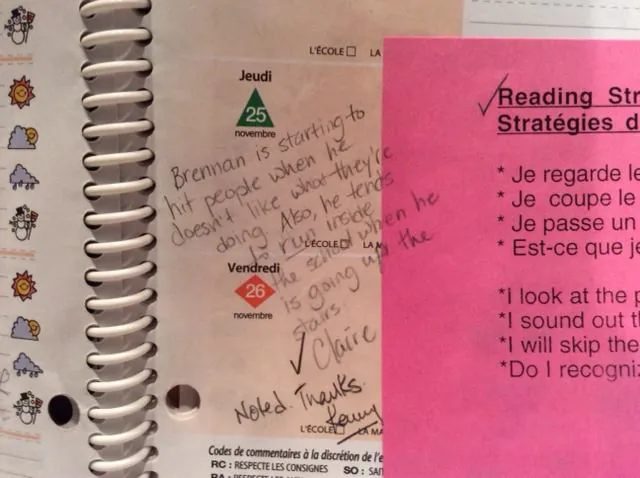 L'ÉCOLE LA
Jeudi
25
novembre
Brennan is starting to
hit people when he
doesn't like what they're
doing. Also, he tends
to run inside
L'ÉCOLE LA M
the school when he
is going up the
stairs.
Vendredi
26
novembre
Claire
Noted. Thanks.
Kenny
L'ÉCOLE LA MA
Codes de commentaires à la discrétion de l'e
RC : RESPECTE LES CONSIGNES SO : SAI
Reading Str
Stratégies d
* Je regarde le
* Je coupe le
* Je passe un
* Est-ce que je
*I look at the p
*I sound out th
*I will skip the
*Do I recogniz